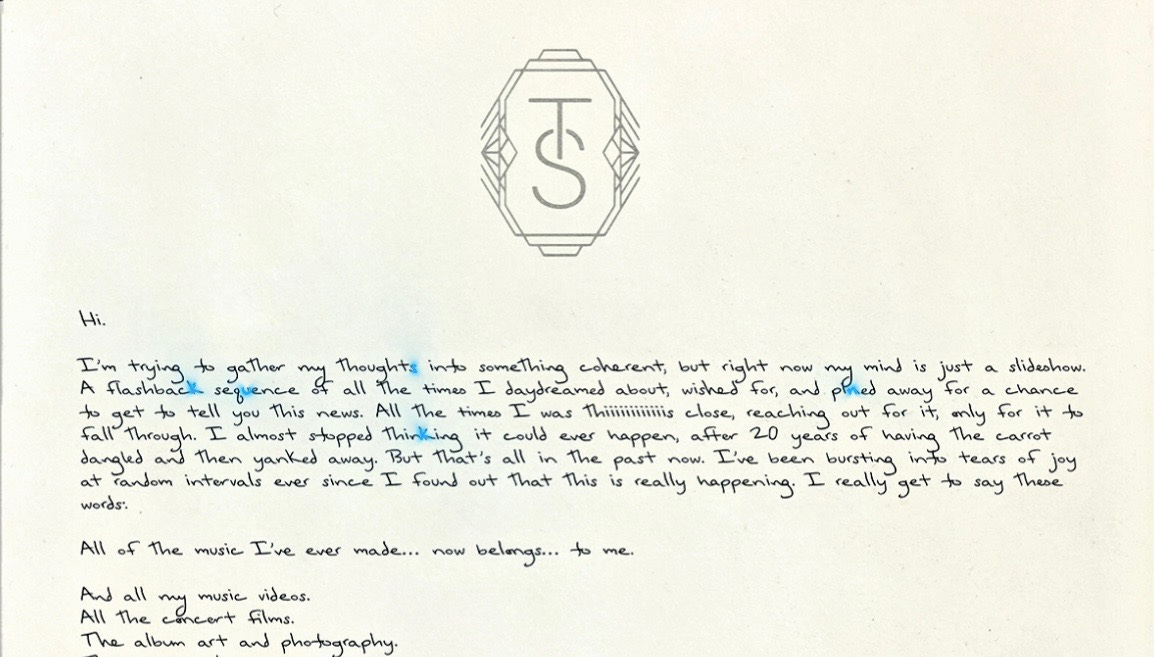 TS
Hi.
I'm trying to gather my thoughts into something coherent, but right now my mind is just a slideshow.
A flashback sequence of all the times I daydreamed about, wished for, and pined away for a chance
to get to tell you this news. All the times I was thiiiiiiiiiiiis close, reaching out for it, only for it to
fall through. I almost stopped thinking it could ever happen, after 20 years of having the carrot
dangled and then yanked away. But that's all in the past now. I've been bursting into tears of joy
at random intervals ever since I found out that this is really happening. I really get to say these
words:
All of the music I've ever made... now belongs... to me.
And all my music videos.
All the concert films.
The album art and photography.